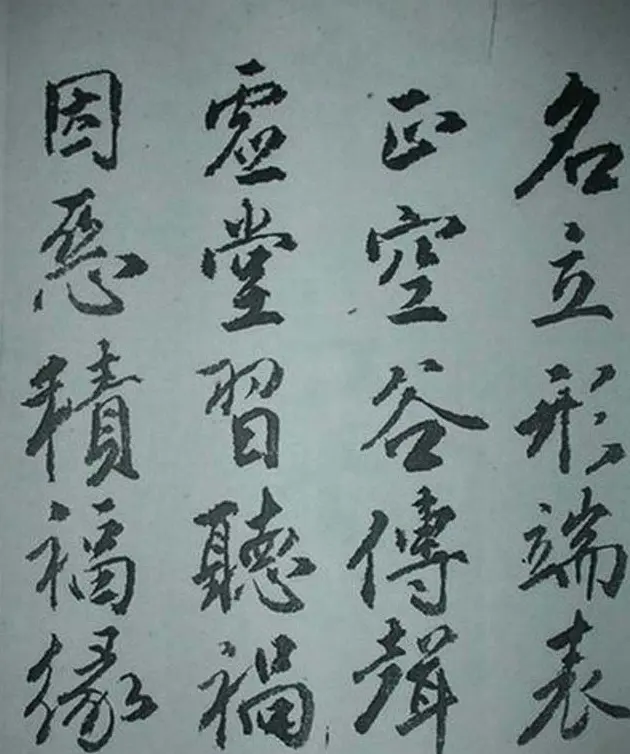 名立形端表
正空谷傳聲
虛堂習聽禍
因惡積福緣